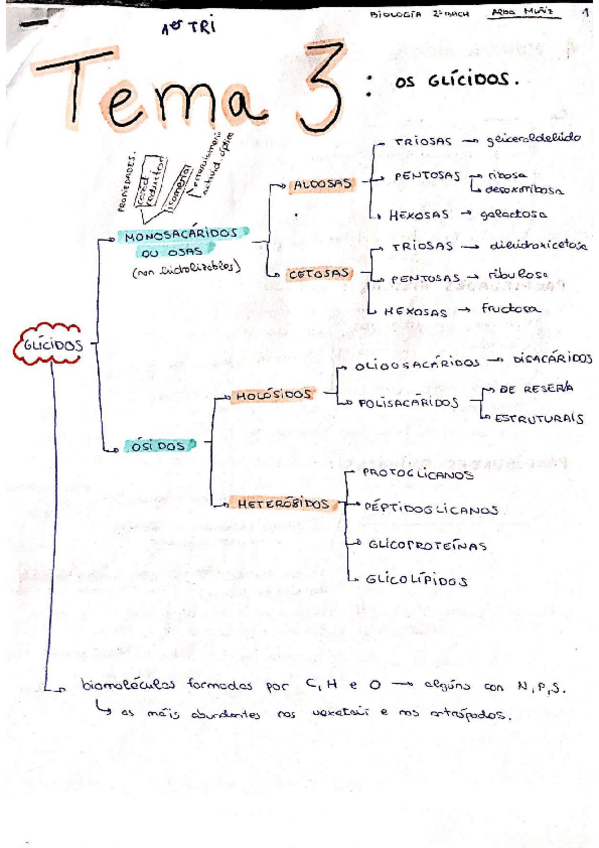 1er TRI
BIOLOGÍA 2º BACH
MUÑIZ
1
Tema 3: OS GLÍCIDOS.
PROPIEDADES.
carácter reductor
isomería
enantiomería
activid. óptica
GLÍCIDOS
MONOSACÁRIDOS
OU OSAS
(non hidrolizables)
ALDOSAS
TRIOSAS → gliceraldehido
PENTOSAS → ribosa
→ desoxirribosa
HEXOSAS → galactosa
CETOSAS
TRIOSAS → dihidroxicetosa
PENTOSAS → ribulosa
HEXOSAS → fructosa
ÓSIDOS
HOLÓSIDOS
OLIGOSACÁRIDOS → DISACÁRIDOS
POLISACÁRIDOS → DE RESERVA
→ ESTRUTURAIS
HETERÓSIDOS
PROTOGLICANOS
PÉPTIDOGLICANOS
GLICOPROTEÍNAS
GLICOLÍPIDOS
biomoléculas formadas por C, H e O → algúns con N, P, S.
↳ as máis abundantes nos vexetais e nos artrópodos.